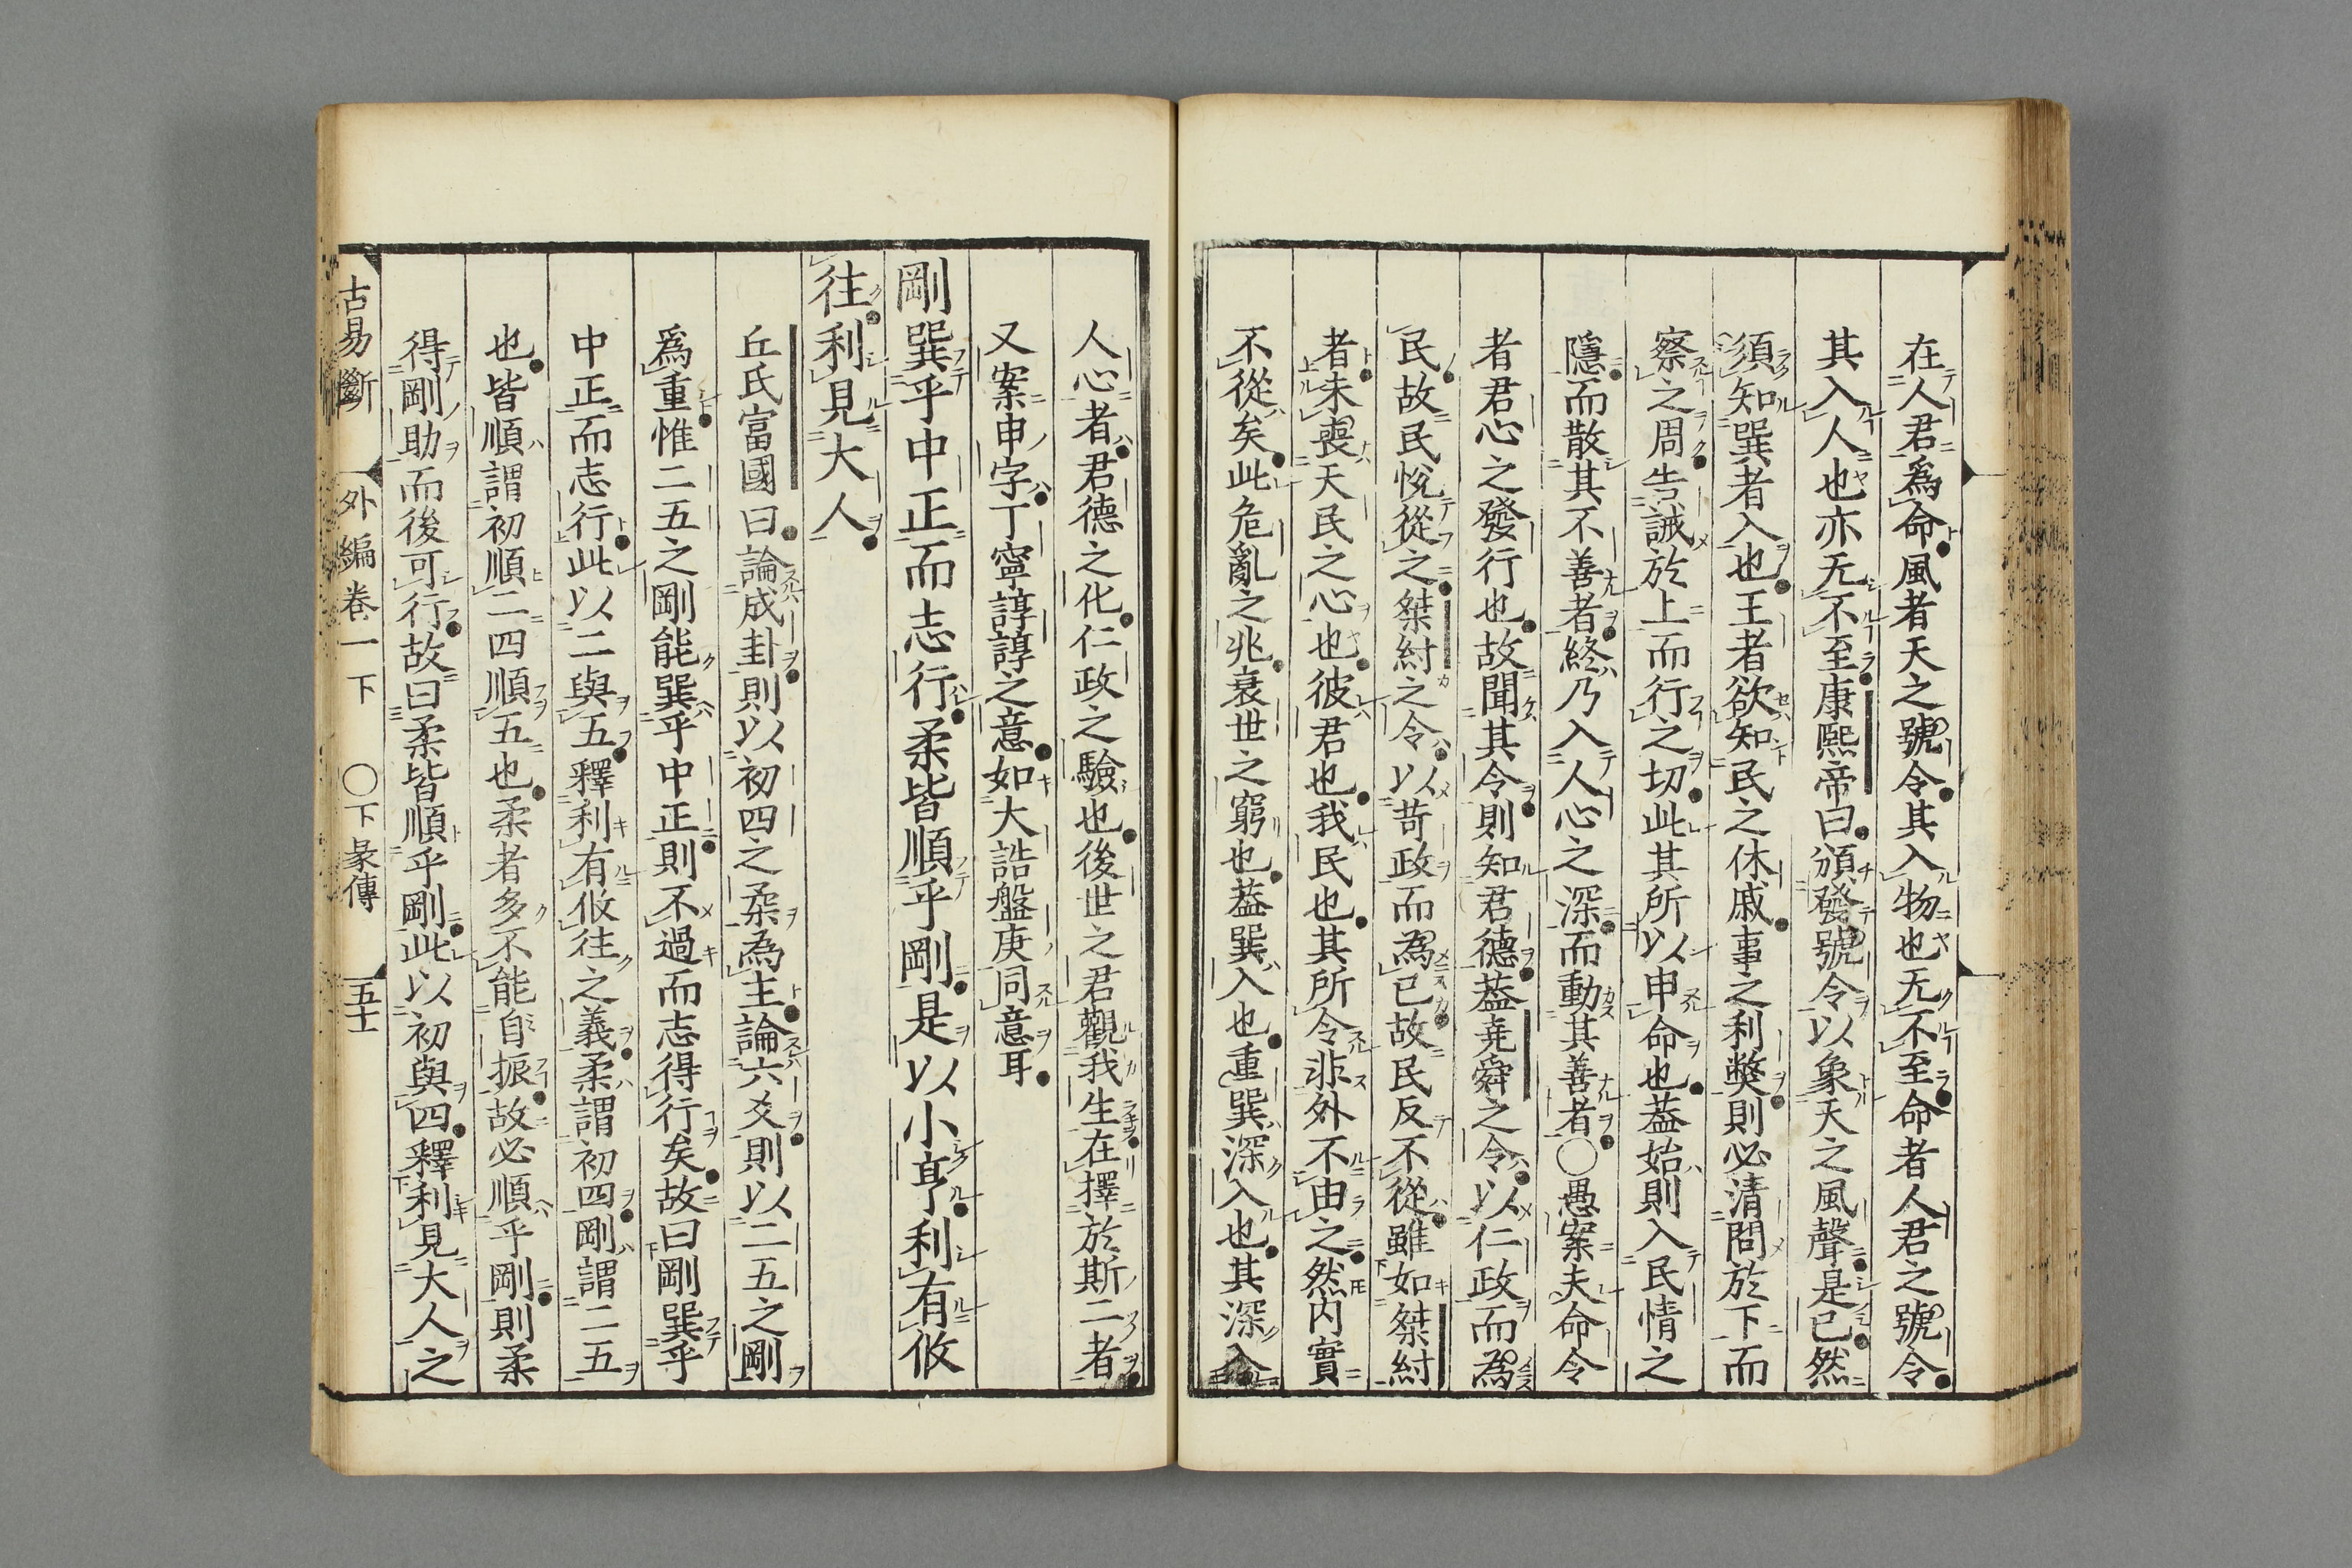 在人君爲命風者天之號令其入物也无不至命者人君之號令
其入人也亦无不至康熙帝曰頒發號令以象天之風聲是已然
須知巽者入也王者欲知民之休戚事之利弊則必清問於下而
察之周告誡於上而行之切此其所以申命也葢始則入民情之
隱而散其不善者終乃入人心之深而動其善者〇愚案夫命令
者君心之發行也故聞其令則知君德葢堯舜之令以仁政而為
民故民悅從之桀紂之令以苛政而為已故民反不從雖如桀紂
者未喪天民之心也彼君也我民也其所令非外不由之然内實
不從矣此危亂之兆衰世之窮也葢巽入也重巽深入也其深入
人心者君德之化仁政之驗也後世之君觀我生在擇於斯二者
又案申字丁寧諄諄之意如大誥盤庚同意耳
剛巽乎中正而志行柔皆順乎剛是以小亨利有攸
往利見大人
丘氏富國曰論成卦則以初四之柔為主論六爻則以二五之剛
爲重惟二五之剛能巽乎中正則不過而志得行矣故曰剛巽乎
中正而志行此以二與五釋利有攸往之義柔謂初四剛謂二五
也皆順謂初順二四順五也柔者多不能自振故必順乎剛則柔
得剛助而後可行故曰柔皆順乎剛此以初與四釋利見大人之
古易斷 外編卷一下 〇下彖傳 五十一